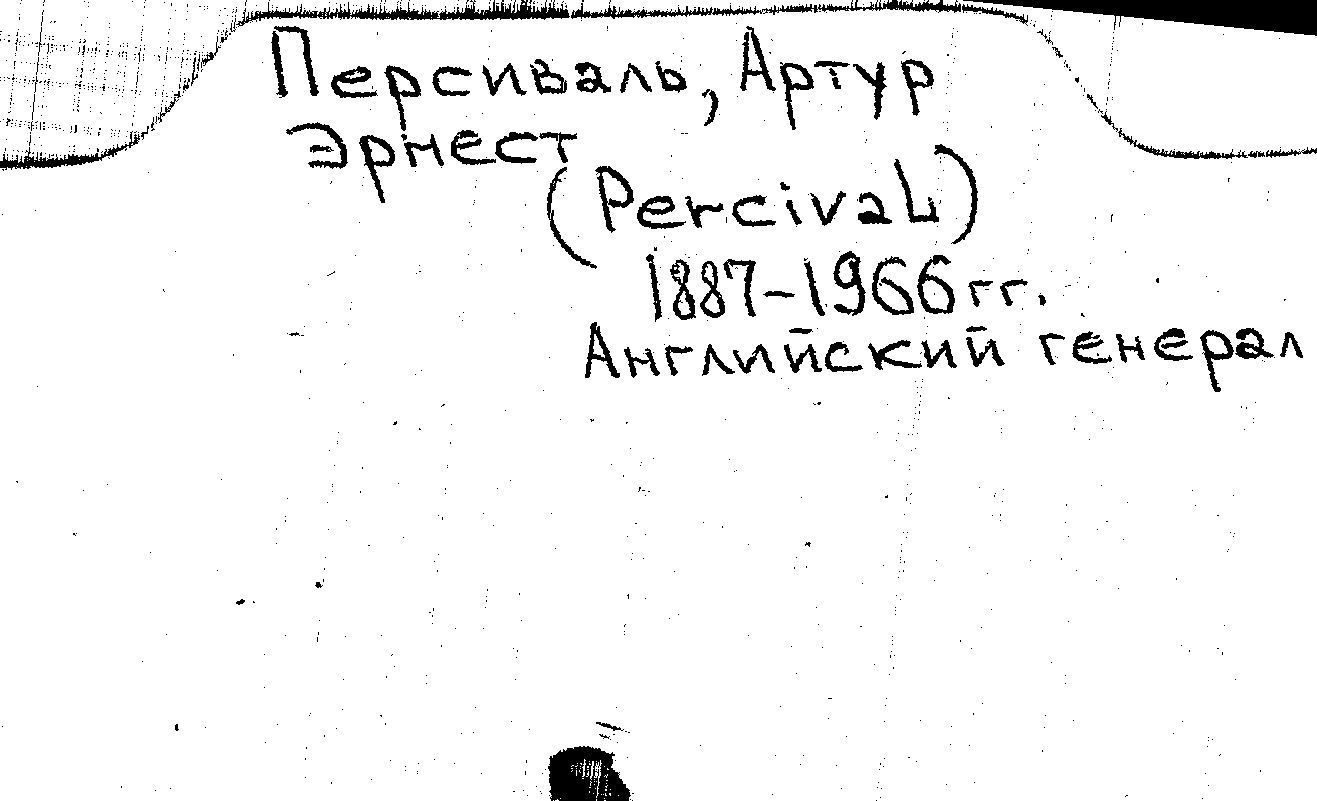 Персиваль, Артур
Эрнест
(Percival)
1887-1966 гг.
Английский генерал